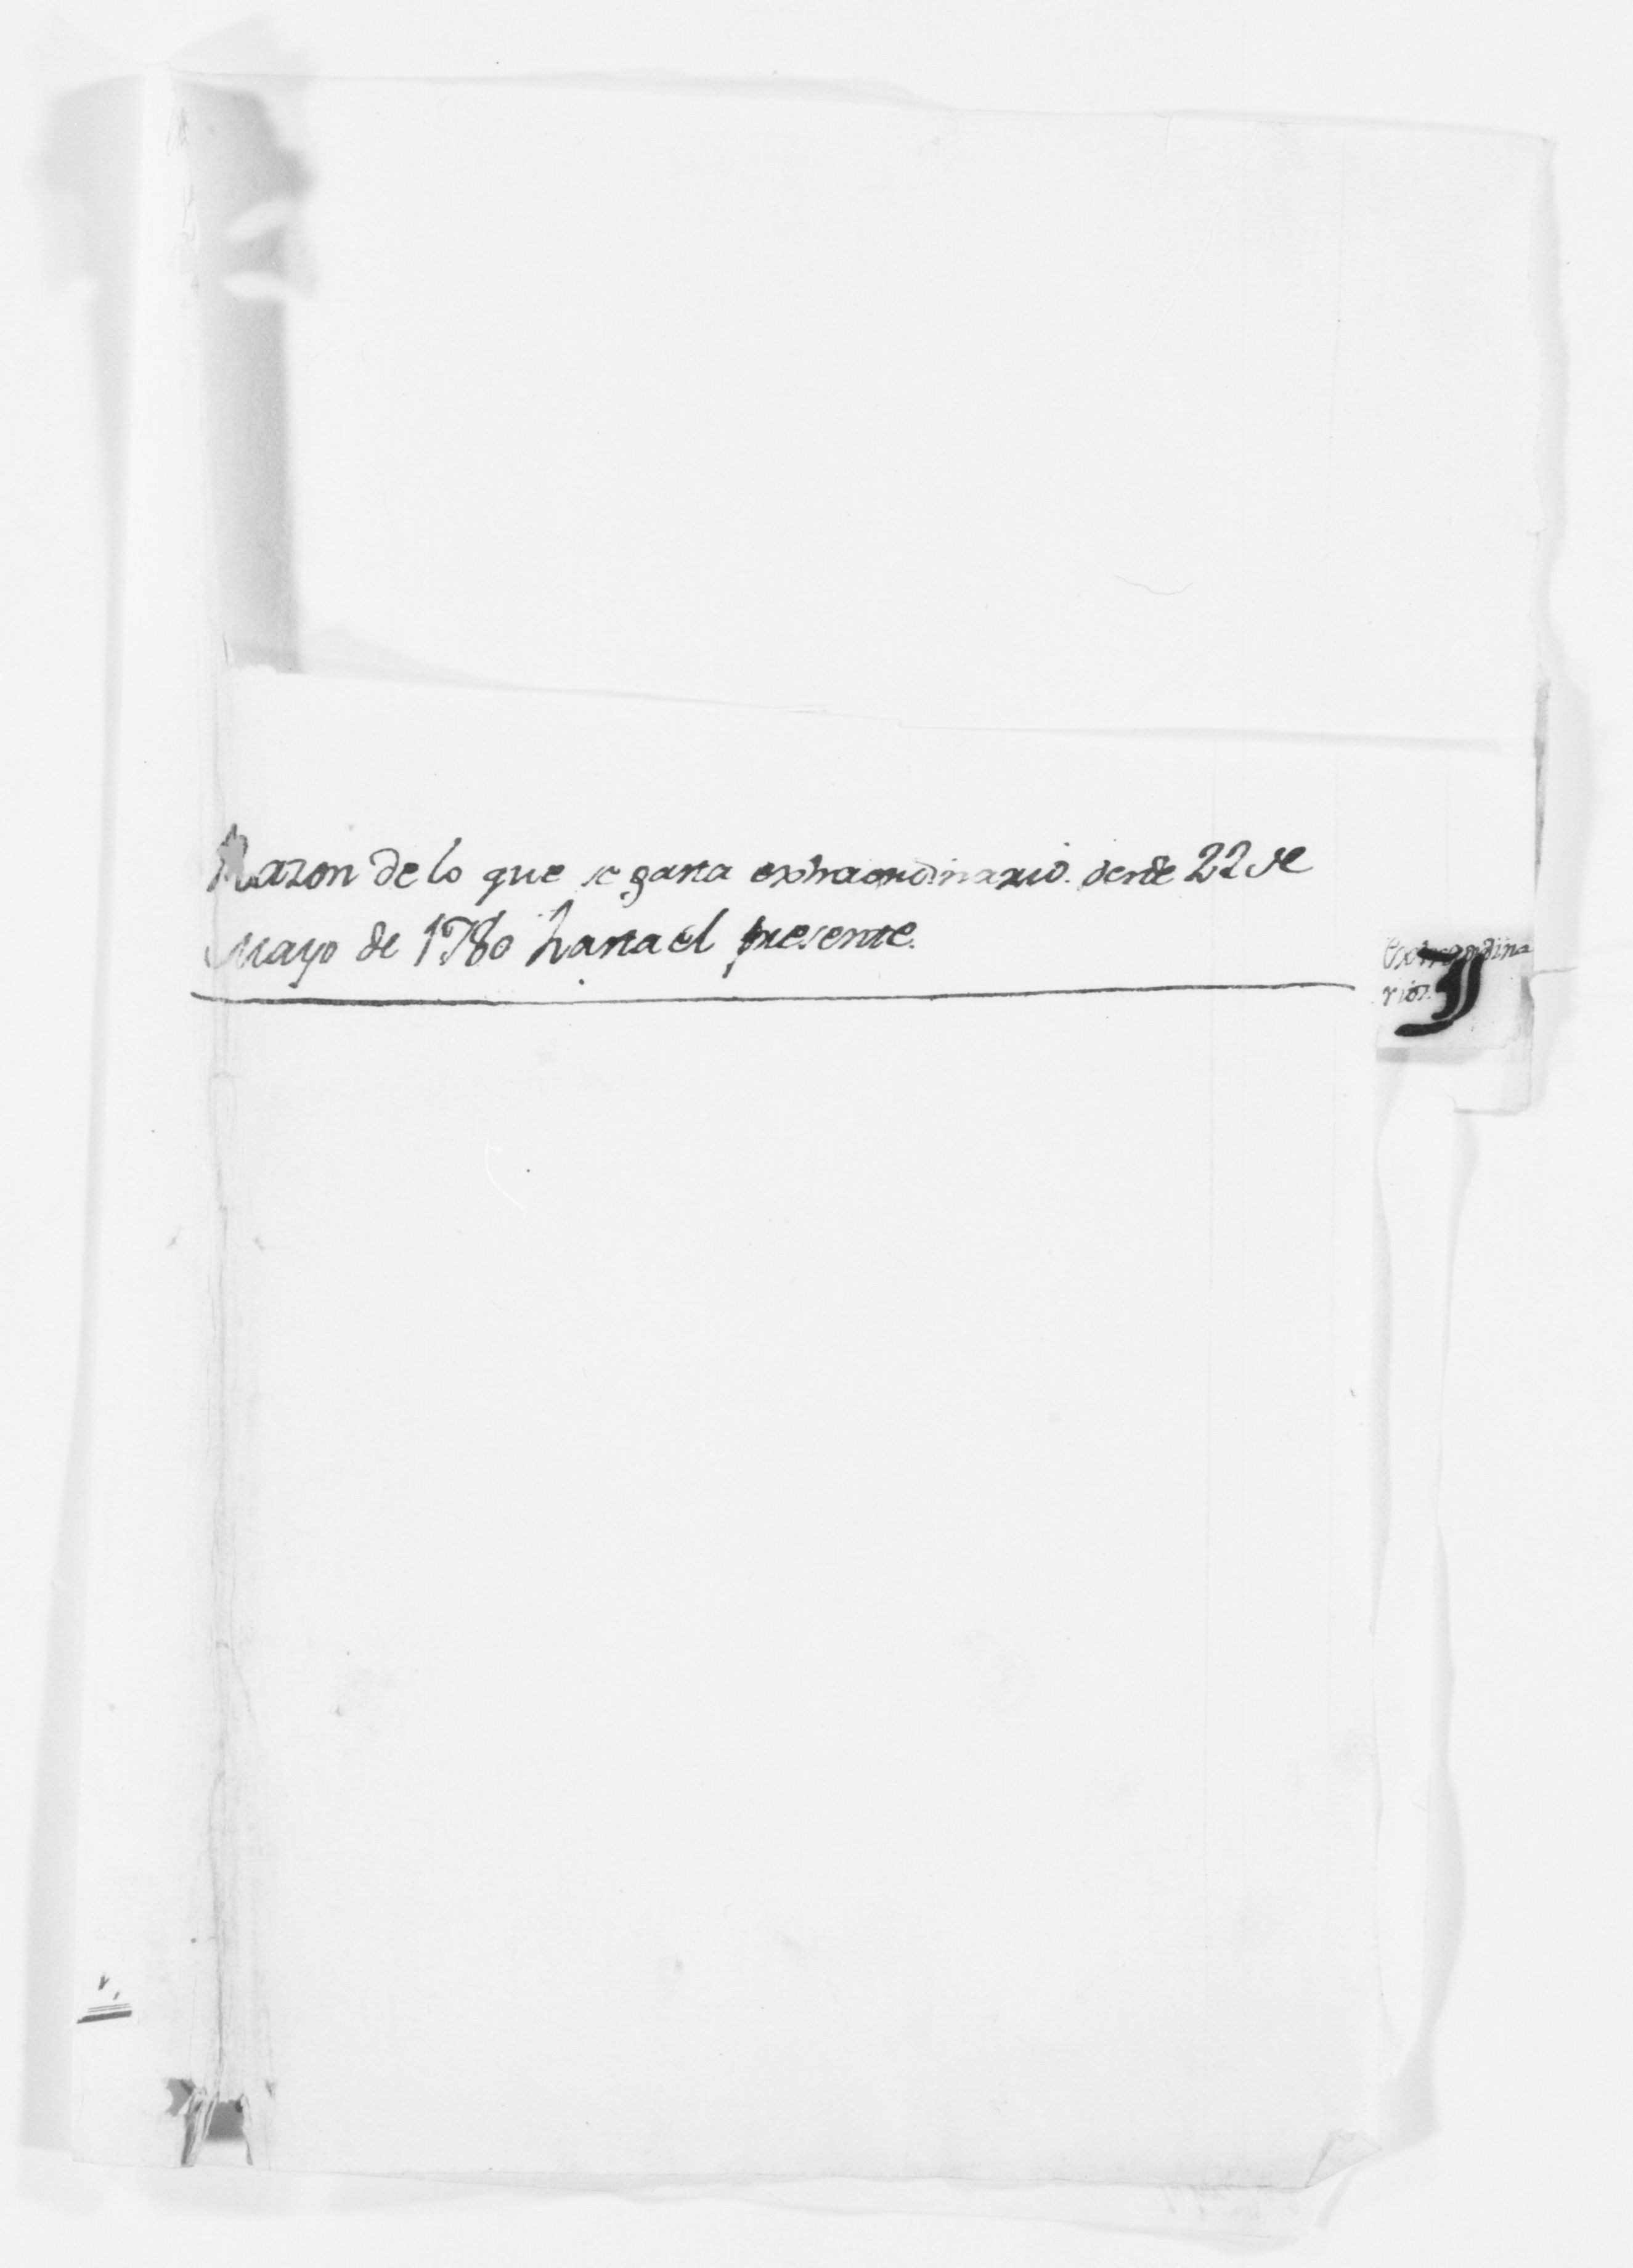 Razon de lo que se gasta extraordinario. desde 22 de
Mayo de 1780 hasta el presente.
Extraordina
rios.